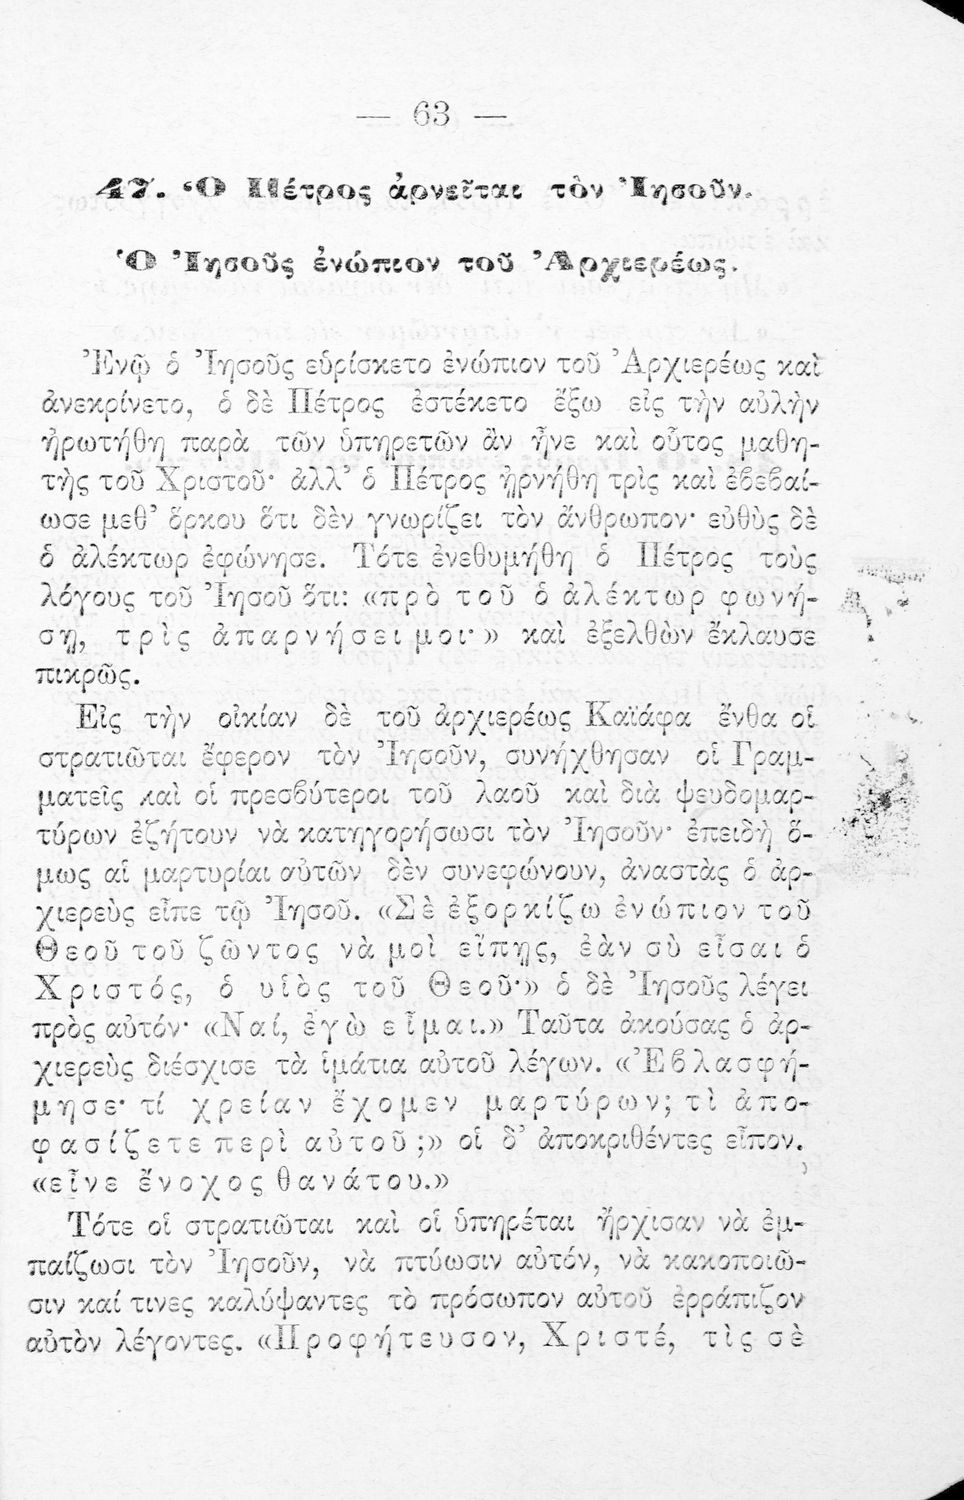 — 63 —
47. Ὁ Πέτρος ἀρνεῖται τὸν Ἰησοῦν.
Ὁ Ἰησοῦς ἐνώπιον τοῦ Ἀρχιερέως.
Ἐνῷ ὁ Ἰησοῦς εὑρίσκετο ἐνώπιον τοῦ Ἀρχιερέως καὶ
ἀνεκρίνετο, ὁ δὲ Πέτρος ἐστέκετο ἔξω εἰς τὴν αὐλὴν
ἠρωτήθη παρὰ τῶν ὑπηρετῶν ἂν ἦνε καὶ οὗτος μαθη-
τὴς τοῦ Χριστοῦ· ἀλλ’ ὁ Πέτρος ἠρνήθη τρὶς καὶ ἐβεβαί-
ωσε μεθ’ ὅρκου ὅτι δὲν γνωρίζει τὸν ἄνθρωπον· εὐθὺς δὲ
ὁ ἀλέκτωρ ἐφώνησε. Τότε ἐνεθυμήθη ὁ Πέτρος τοὺς
λόγους τοῦ Ἰησοῦ ὅτι: «πρὸ τοῦ ὁ ἀλέκτωρ φωνή-
σῃ, τρὶς ἀπαρνήσει μοι·» καὶ ἐξελθὼν ἔκλαυσε
πικρῶς.
Εἰς τὴν οἰκίαν δὲ τοῦ ἀρχιερέως Καϊάφα ἔνθα οἱ
στρατιῶται ἔφερον τὸν Ἰησοῦν, συνήχθησαν οἱ Γραμ-
ματεῖς καὶ οἱ πρεσβύτεροι τοῦ λαοῦ καὶ διὰ ψευδομαρ-
τύρων ἐζήτουν νὰ κατηγορήσωσι τὸν Ἰησοῦν· ἐπειδὴ ὅ-
μως αἱ μαρτυρίαι αὐτῶν δὲν συνεφώνουν, ἀναστὰς ὁ ἀρ-
χιερεὺς εἶπε τῷ Ἰησοῦ. «Σὲ ἐξορκίζω ἐνώπιον τοῦ
Θεοῦ τοῦ ζῶντος νὰ μοὶ εἴπῃς, ἐὰν σὺ εἶσαι ὁ
Χριστός, ὁ υἱὸς τοῦ Θεοῦ·» ὁ δὲ Ἰησοῦς λέγει
πρὸς αὐτόν· «Ναί, ἐγὼ εἶμαι.» Ταῦτα ἀκούσας ὁ ἀρ-
χιερεὺς διέσχισε τὰ ἱμάτια αὐτοῦ λέγων. «Ἐβλασφή-
μησε· τί χρείαν ἔχομεν μαρτύρων; τὶ ἀπο-
φασίζετε περὶ αὐτοῦ;» οἱ δ’ ἀποκριθέντες εἶπον.
«εἶνε ἔνοχος θανάτου.»
Τότε οἱ στρατιῶται καὶ οἱ ὑπηρέται ἤρχισαν νὰ ἐμ-
παίζωσι τὸν Ἰησοῦν, νὰ πτύωσιν αὐτόν, νὰ κακοποιῶ-
σιν καί τινες καλύψαντες τὸ πρόσωπον αὐτοῦ ἐρράπιζον
αὐτὸν λέγοντες. «Προφήτευσον, Χριστέ, τὶς σὲ